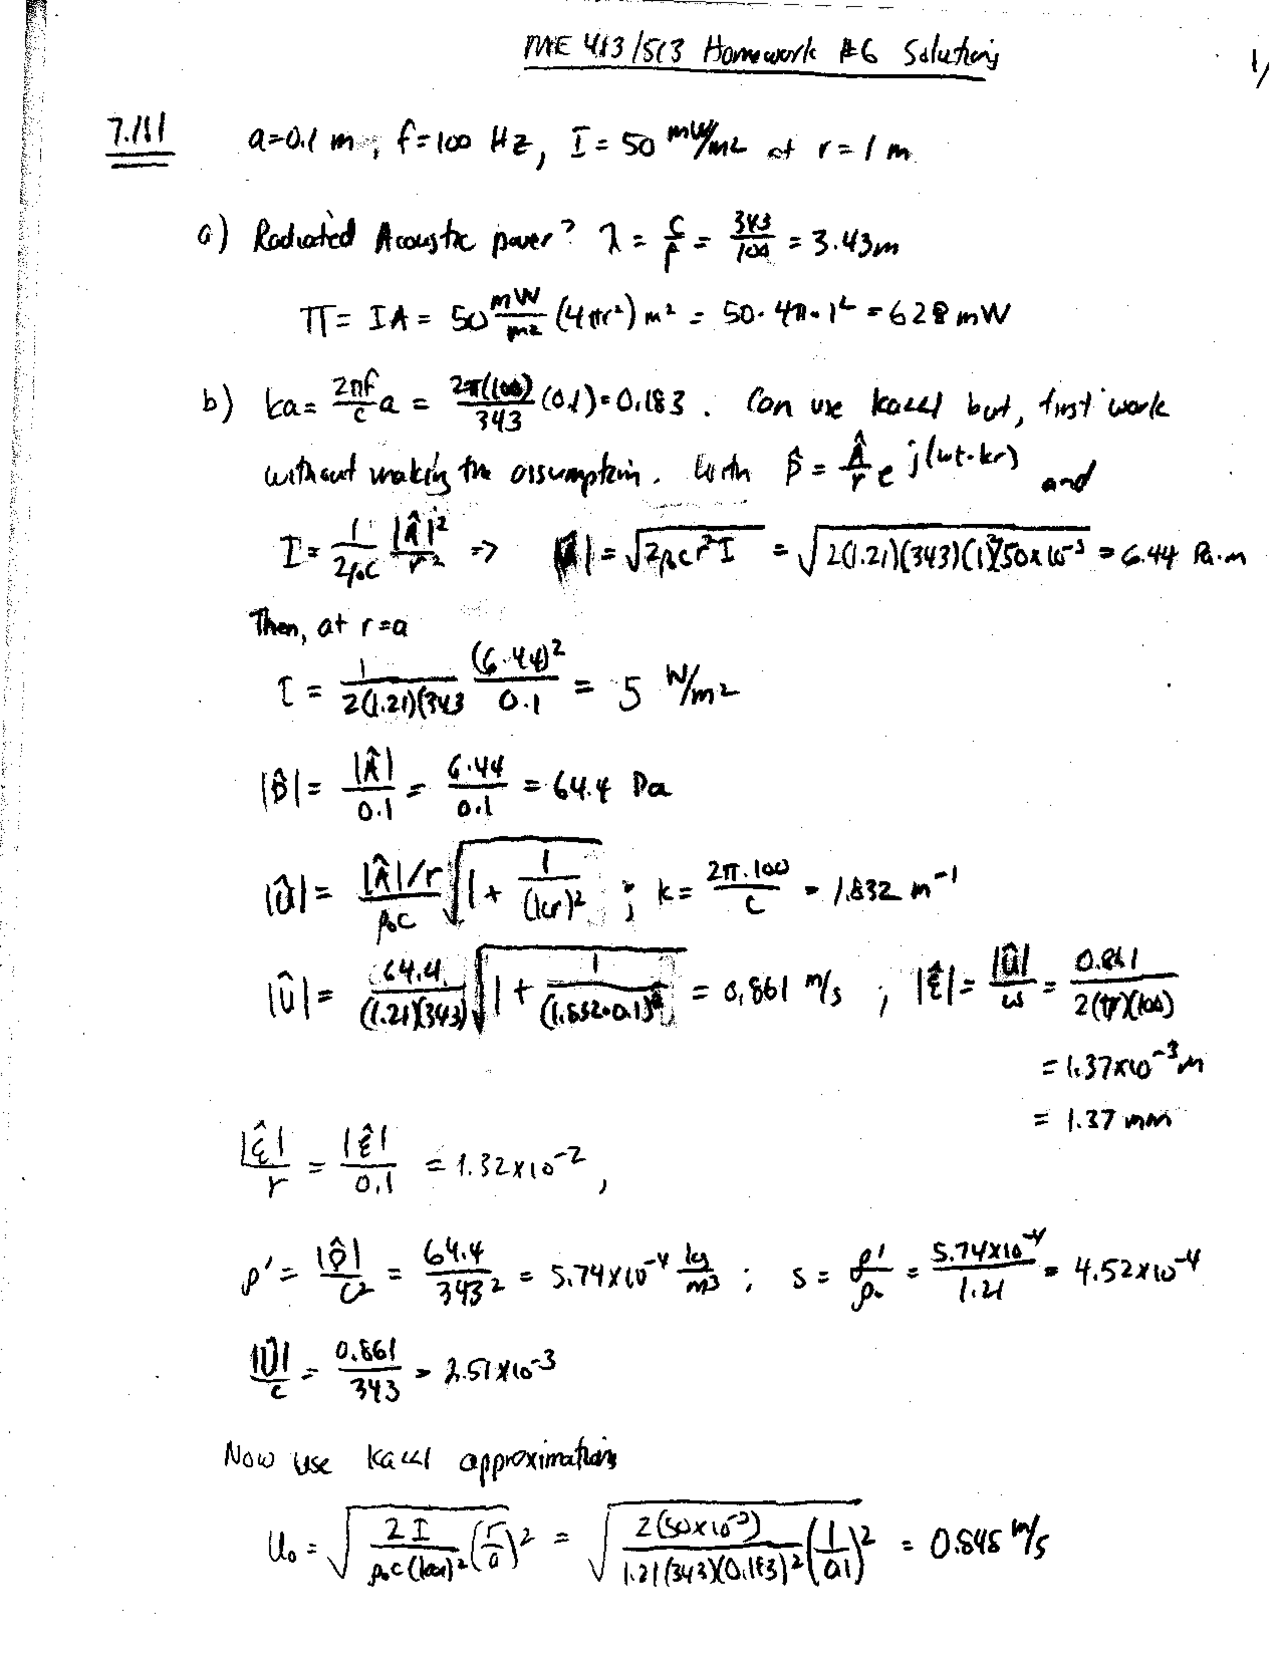 MAE 413/513 Homework #6 Solutions
1/
7.1.1 a=0.1 m, f=100 Hz, I = 50 mW/m2 at r = 1 m
a) Radiated Acoustic power? λ = c/f = 343/100 = 3.43m
Π = IA = 50 mW/m2 (4πr²) m² = 50·4π·1² = 628 mW
b) ka = 2πf/c a = 2π(100)/343 (0.1) = 0.183. Can use ka<<1 but, first work
without making the assumption. With p̂ = Â/r e^j(ωt-kr) and
I = 1/2ρ₀c |Â|²/r² => |Â| = √(2ρ₀cr²I) = √(2(1.21)(343)(1²)50x10⁻³) = 6.44 Pa·m
Then, at r=a
I = 1/2(1.21)(343 (6.44)²/0.1 = 5 W/m2
|p̂| = |Â|/0.1 = 6.44/0.1 = 64.4 Pa
|û| = |Â|/r/ρ₀c √(1 + 1/(kr)²) ; k = 2π·100/c = 1.832 m⁻¹
|û| = 64.4/(1.21)(343) √(1 + 1/(1.832·0.1)²) = 0.861 m/s ; |ξ̂| = |û|/ω = 0.861/2(π)(100)
= 1.37x10⁻³m
= 1.37 mm
|ξ̂|/r = |ξ̂|/0.1 = 1.32x10⁻²,
ρ' = |p̂|/c² = 64.4/343² = 5.74x10⁻⁴ kg/m3 ; s = ρ'/ρ₀ = 5.74x10⁻⁴/1.21 = 4.52x10⁻⁴
|Û|/c = 0.861/343 = 2.51x10⁻³
Now use ka<<1 approximations
U₀ = √(2I/ρ₀c(ka)² (r/a)²) = √(2(50x10⁻³)/1.21(343)(0.183)² (1/0.1)²) = 0.848 m/s